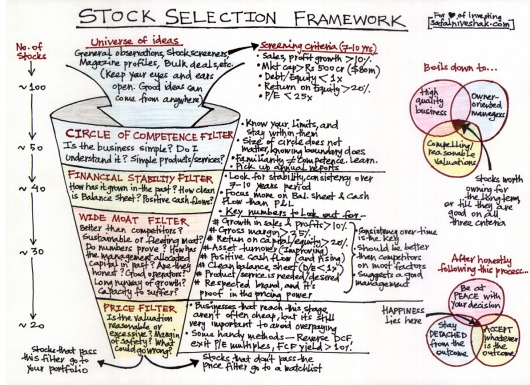 STOCK SELECTION FRAMEWORK
For ♥ of investing
safalniveshak.com
No. of
Stocks
~100
~50
~40
~30
~20
Universe of ideas
General observations, Stock screeners,
Magazine profiles, Bulk deals, etc.
(Keep your eyes and ears
open. Good ideas can
come from anywhere)
Screening Criteria (7-10 yrs)
• Sales, profit growth >10%
• Mkt cap > Rs 500 cr ($80m)
• Debt/Equity < 1x
• Return on Equity > 20%
• P/E < 25x
CIRCLE OF COMPETENCE FILTER
Is the business simple? Do I
understand it? Simple products/services?
• Know your limits, and
stay within them
• Size of circle does not
matter, knowing boundary does
• Familiarity ≠ Competence. Learn.
• Pick up annual reports
FINANCIAL STABILITY FILTER
How has it grown in the past? How clean
is Balance Sheet? Positive cash flows?
• Look for stability, consistency over
7-10 years period
• Focus more on Bal. Sheet & Cash
flow than P&L
WIDE MOAT FILTER
Better than competitors?
Sustainable or fleeting moat?
Do numbers prove? How has
the management allocated
capital in past? Are they
honest? Good operators?
Long runway of growth?
Capacity to suffer?
• Key numbers to look out for -
# Growth in sales & profits >10%
# Gross margin > 25%
# Return on capital/equity > 20%
# Asset turnover (Improving)
# Positive cash flow (and rising)
# Clean balance sheet (D/E < 1x)
# Product/service is needed/desired
# Respected brand, and it's
proof in the pricing power
Consistency over-time
is the key
Should be better
than competitors
on most factors
Suggests a good
management
PRICE FILTER
Is the valuation
reasonable, or
excessive? Margin
of safety? What
could go wrong?
• Businesses that reach this stage
aren't often cheap, but it is still
very important to avoid overpaying
• Some handy methods — Reverse DCF
exit P/E multiples, FCF yield > 10%
Stocks that pass
this filter go to
your portfolio
Stocks that don't pass the
price filter go to a watchlist
Boils down to...
High
quality
business
Owner-
oriented
managers
Compelling/
reasonable
valuations
Stocks worth
owning for
the long term,
or till they are
good on all
three criteria
After honestly
following this process...
HAPPINESS
lies here
Be at
PEACE with
your decision
Stay
DETACHED
from the
outcome
ACCEPT
whatever
is the
outcome